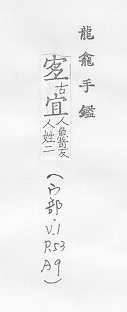 龍龕手鑑
古宜魚奇反
人姓二
(宀部·V.1
P.53
A9)